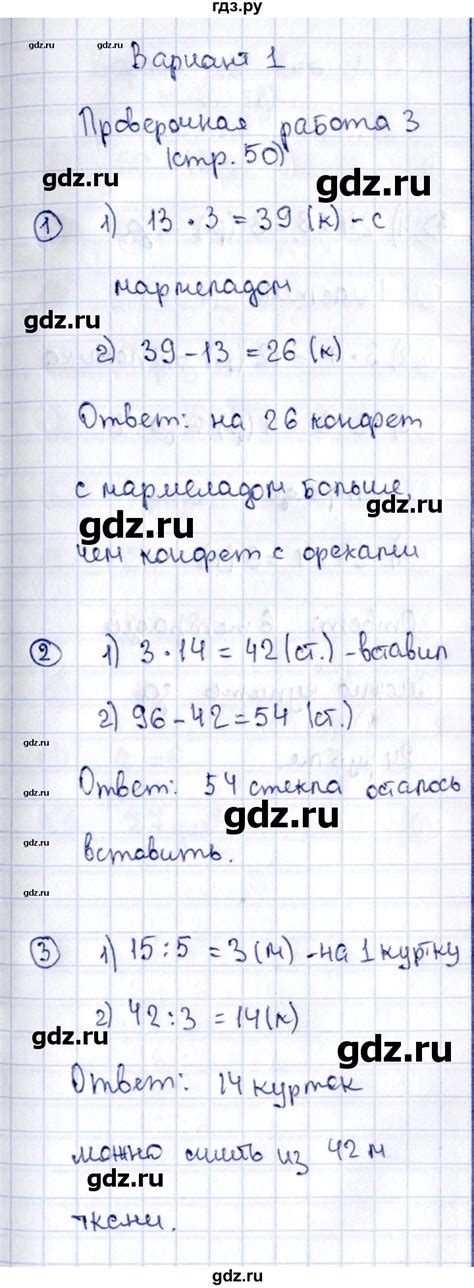 гдз.ру
gdz.ru
gdz.ru
Вариант 1
gdz.ru
Проверочная работа 3
(стр. 50)
gdz.ru
gdz.ru
① 1) 13 · 3 = 39 (к) - с
мармеладом
gdz.ru
2) 39 - 13 = 26 (к)
gdz.ru
Ответ: на 26 конфет
с мармеладом больше,
gdz.ru
gdz.ru
чем конфет с орехами
② 1) 3 · 14 = 42 (ст.) - вставил
gdz.ru
2) 96 - 42 = 54 (ст.)
gdz.ru
Ответ: 54 стекла осталось
gdz.ru
вставить.
gdz.ru
③ 1) 15 : 5 = 3 (м) - на 1 куртку
gdz.ru
2) 42 : 3 = 14 (к)
gdz.ru
gdz.ru
Ответ: 14 курток
можно сшить из 42 м
gdz.ru
gdz.ru
ткани.
gdz.ru